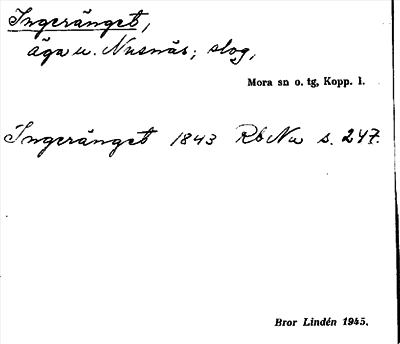 Ingeränget,
äga u. Nusnäs; skog,
Mora sn o. tg, Kopp. l.
Ingeränget 1843 Rb Nu s. 247.
Bror Lindén 1945.